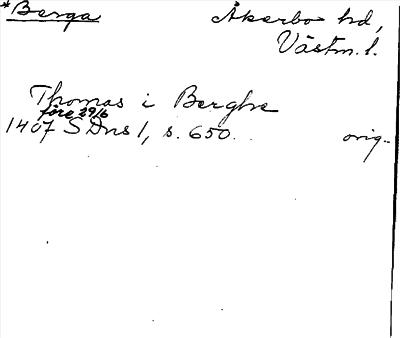 *Berga
Åkerbo hd,
Västm. l.
Thomas i Berghe
före 29/6
1407 SDns 1, s. 650.
orig.